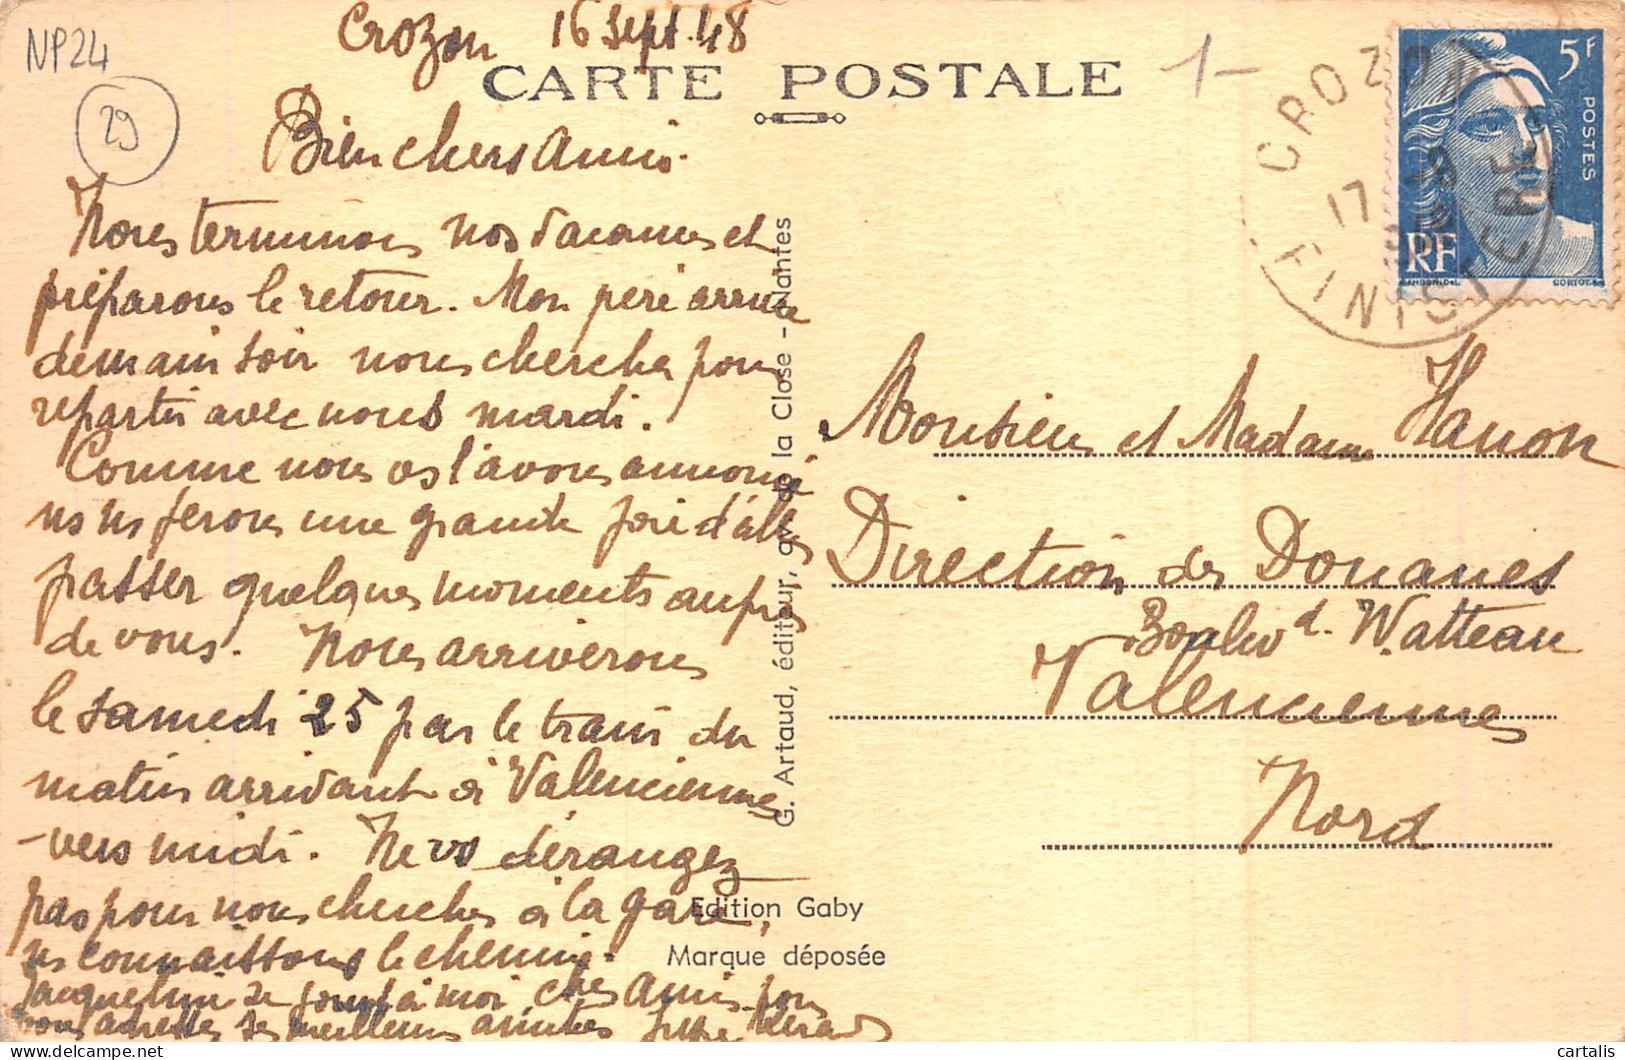 NP24
29
Crozon 16 Sept. 48
CARTE POSTALE
1-
Bien chers amis.
Nous terminons nos vacances et
préparons le retour. Mon père arrive
demain soir nous chercher pour
repartir avec nous mardi.
Comme nous vs l'avons annoncé
ns ns ferons une grande joie d'aller
passer quelques moments auprès
de vous. Nous arriverons
le samedi 25 par le train du
matin arrivant à Valenciennes
vers midi. Ne vs dérangez
pas pour nous chercher à la gare,
ns connaissons le chemin.
Jacqueline se joint à moi chers amis pour
vous adresser ses meilleures amitiés
G. Artaud, éditeur, av. de la Close - Nantes
Edition Gaby
Marque déposée
CROZON
17
FINISTERE
5F
POSTES
RF
GANDON DEL.
CORTOT SC.
Monsieur et Madame Hanon
Direction des Douanes
Boulevd. Watteau
Valenciennes
Nord
cartalis